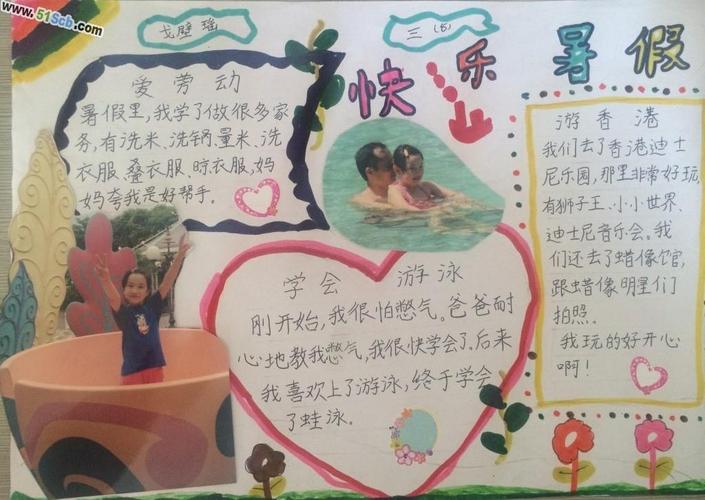 www.51Scb.com
戈壁瑶
三（8）
快乐暑假
爱劳动
暑假里，我学了做很多家
务，有洗米、洗锅、量米、洗
衣服、叠衣服、晾衣服，妈
妈夸我是好帮手。
学会 游泳
刚开始，我很怕憋气。爸爸耐
心地教我憋气，我很快学会了。后来
我喜欢上了游泳，终于学会
了蛙泳。
游香港
我们去了香港迪士
尼乐园，那里非常好玩，
有狮子王、小小世界、
迪士尼音乐会。我
们还去了蜡像馆，
跟蜡像明星们
拍照。
我玩的好开心
啊！